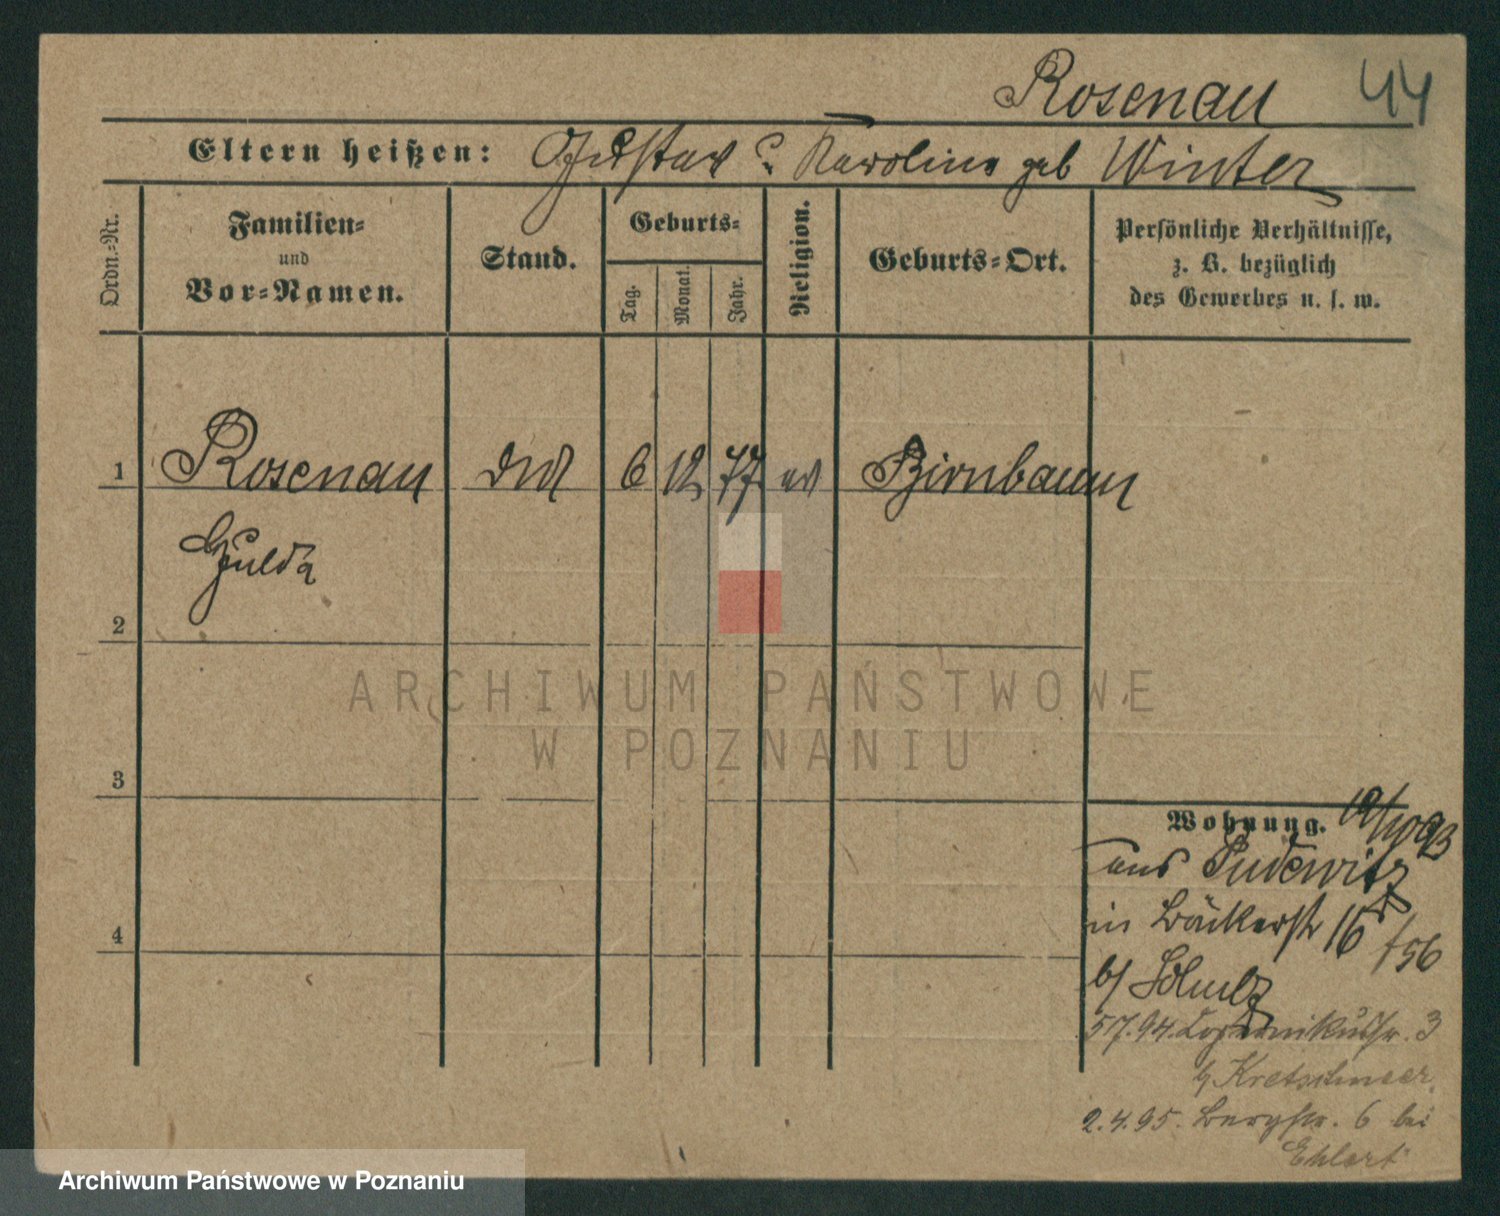 Rosenau 44
Eltern heißen: Gustav u. Karoline geb Winter
Ordn.-Nr.
Familien-
und
Vor-Namen.
Stand.
Geburts-
Tag.
Monat.
Jahr.
Religion.
Geburts-Ort.
Persönliche Verhältnisse,
z. B. bezüglich
des Gewerbes u. s. w.
1 Rosenau 6 12 77 ev Birnbaum
Hulda
2
3
4
ARCHIWUM PAŃSTWOWE
W POZNANIU
Wohnung. 12/10 93
aus Pudewitz
in Bäckerstr 16
f 56
b/
5/7.94. Kopernikusstr. 3
b/ Kretschmer
2.4.95. Bergstr. 6 bei
Ehlert
Archiwum Państwowe w Poznaniu